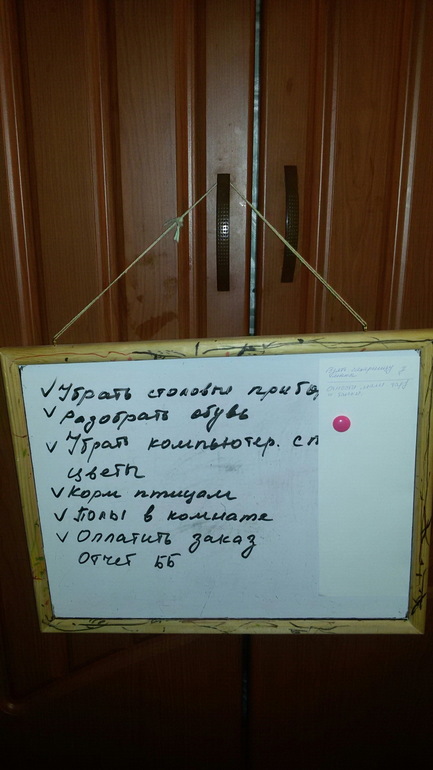 ✓ Убрать столовы прибо
✓ Разобрать обувь
✓ Убрать компьютер. сп
цветы
✓ Корм птицам
✓ Полы в комнате
✓ Оплатить заказ
Отчет ББ